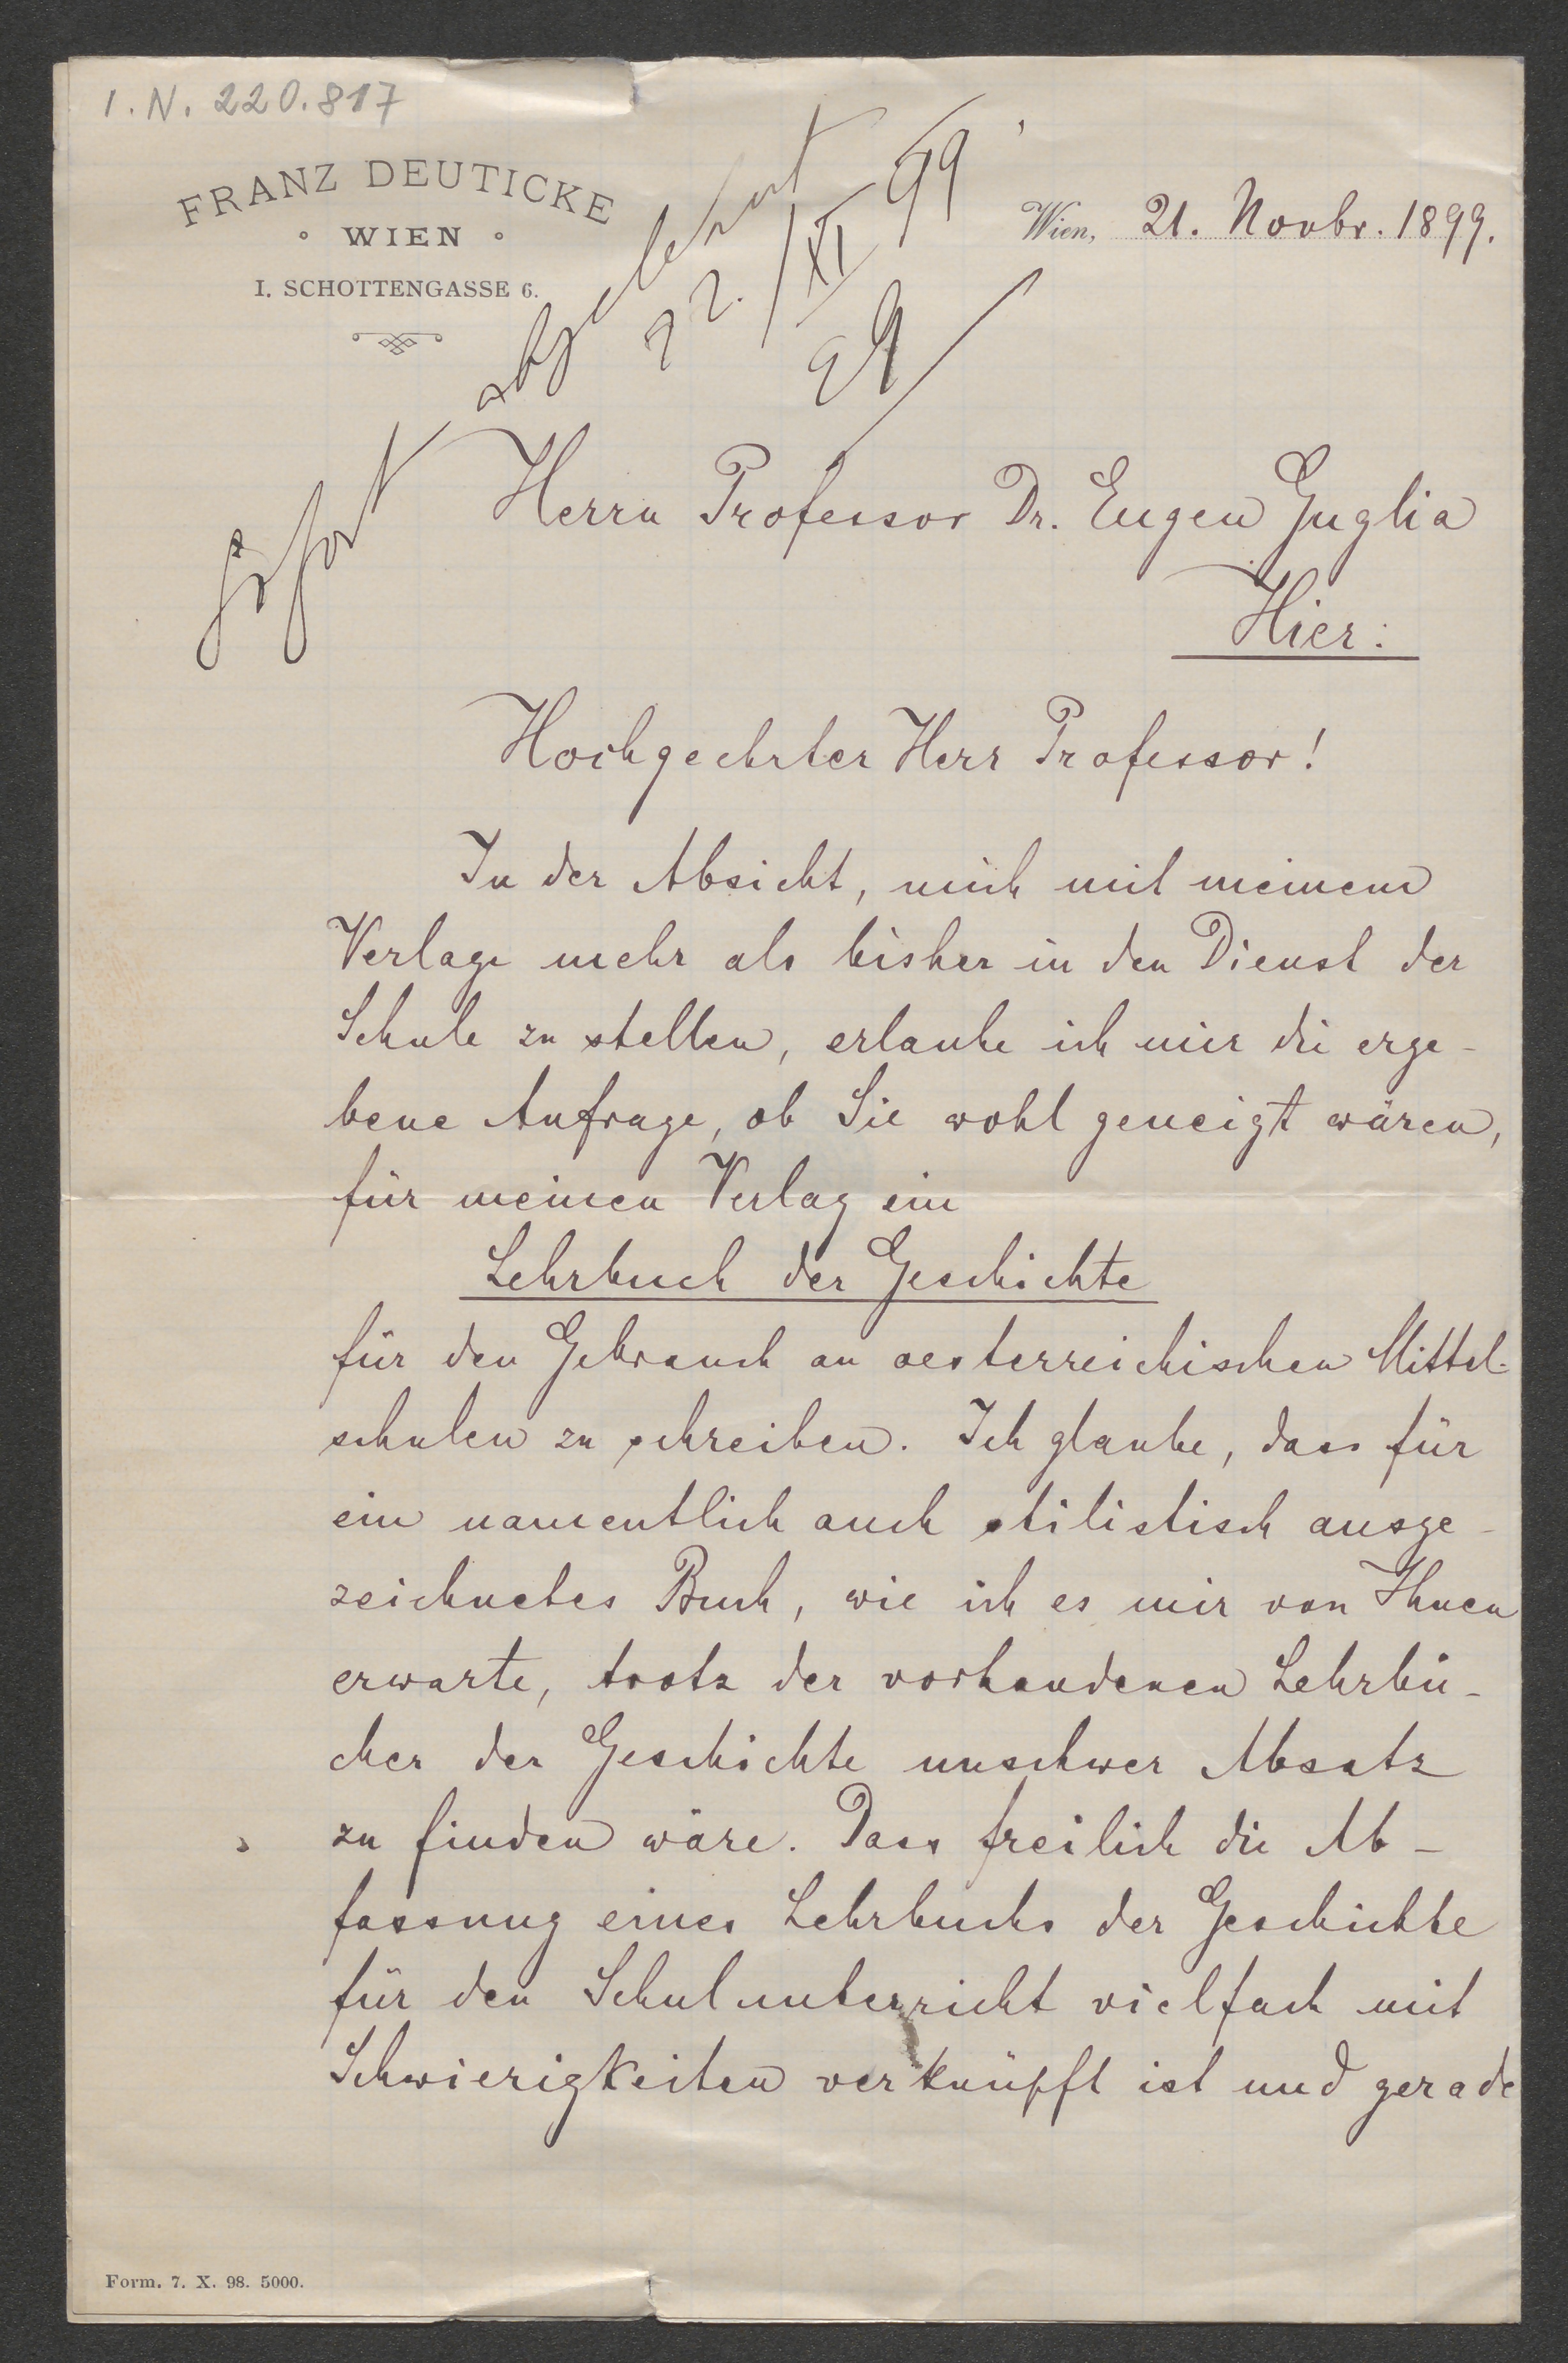 I. N. 220.817
FRANZ DEUTICKE
WIEN
I. SCHOTTENGASSE 6.
Wien, 21. Novbr. 1899.
sofort abgelehnt
22./XI 99
Herrn Professor Dr. Eugen Guglia
Hier:
Hochgeehrter Herr Professor!
In der Absicht, mich mit meinem
Verlage mehr als bisher in den Dienst der
Schule zu stellen, erlaube ich mir die erge-
bene Anfrage, ob Sie wohl geneigt wären,
für meinen Verlag ein
Lehrbuch der Geschichte
für den Gebrauch an oesterreichischen Mittel-
schulen zu schreiben. Ich glaube, dass für
ein namentlich auch stilistisch ausge-
zeichnetes Buch, wie ich es mir von Ihnen
erwarte, trotz der vorhandenen Lehrbü-
cher der Geschichte unschwer Absatz
zu finden wäre. Dass freilich die Ab-
fassung eines Lehrbuchs der Geschichte
für den Schulunterricht vielfach mit
Schwierigkeiten verknüpft ist und gerade
Form. 7. X. 98. 5000.